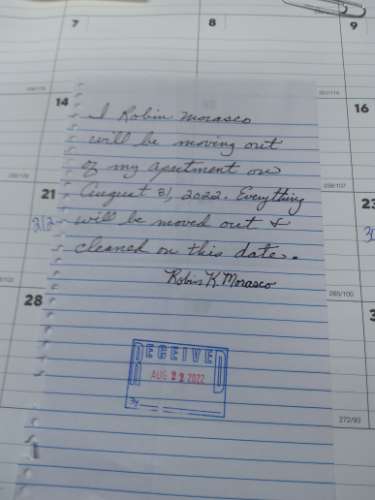 7
8
9
251/114
14
16
I Robin Morasco
will be moving out
of my apartment on
August 31, 2022. Everything
will be moved out &
cleaned on this date.
Robin K. Morasco
258/107
21
23
265/100
28
RECEIVED
AUG 22 2022
By
272/93